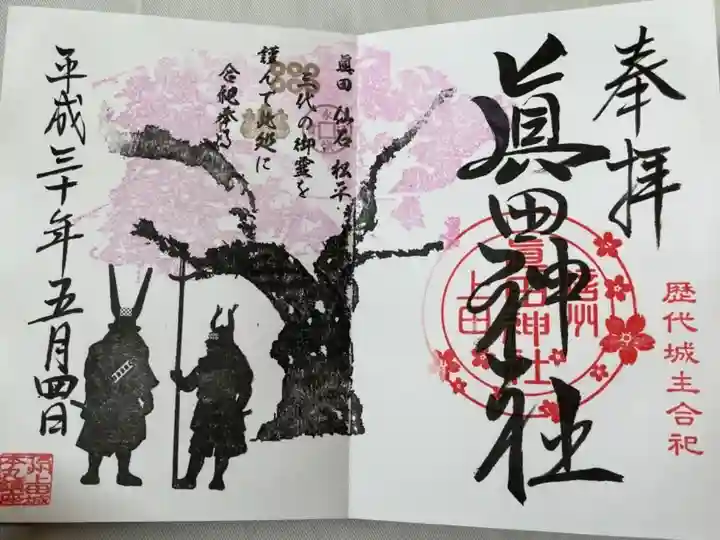 奉拝
眞田神社
信州
眞田神社
上田
歴代城主合祀
眞田 仙石 松平
三代の御霊を
謹んで此処に
合祀奉る
平成三十年五月四日